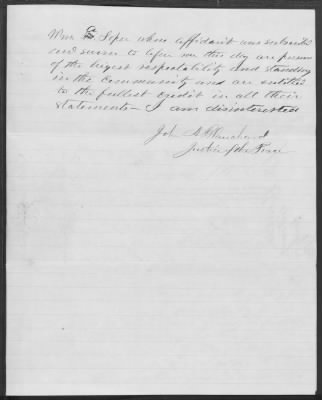 Wm E Soper whose affidavit was subscribed
and sworn to before me this day are persons
of the highest respectability and standing
in the community and are entitled
to the fullest credit in all their
statements — I am disinterested
Justice of the Peace